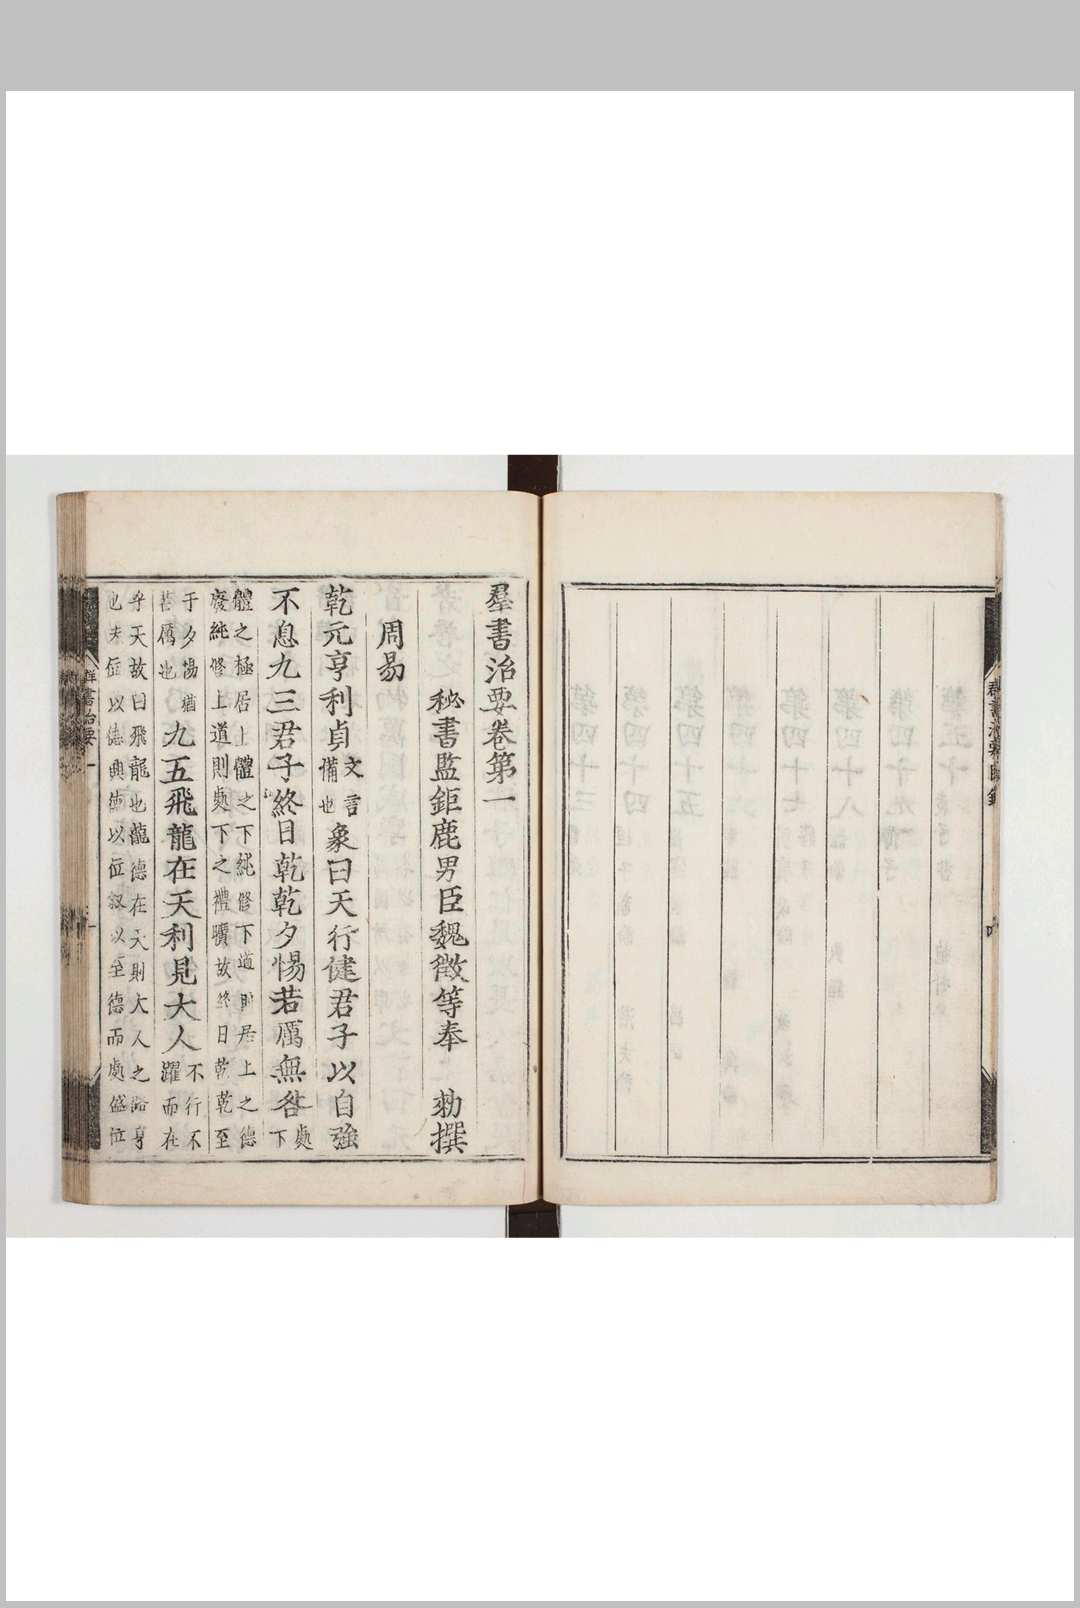 羣書治要卷第一
秘書監鉅鹿男臣魏徵等奉 勑撰
周易
乾元亨利貞文言備也象曰天行健君子以自強
不息九三君子終日乾乾夕惕若厲無咎處下
體之極居上體之下純修下道則居上之德
廢純修上道則處下之禮曠故終日乾乾至
于夕惕猶
若厲也九五飛龍在天利見大人不行不
躍而在
乎天故曰飛龍也龍德在天則大人之路亨
也夫位以德興德以位敘以至德而處盛位
群書治要一